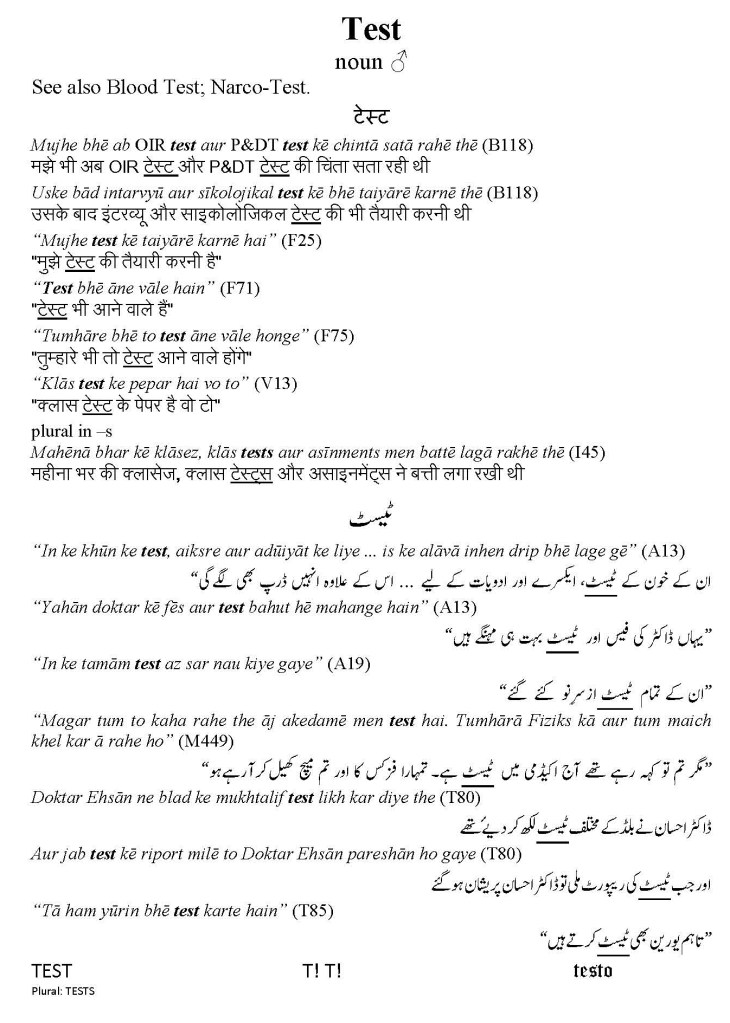 Test
noun ♂
See also Blood Test; Narco-Test.
टेस्ट
Mujhe bhē ab OIR test aur P&DT test kē chintā satā rahē thē (B118)
मझे भी अब OIR टेस्ट और P&DT टेस्ट की चिंता सता रही थी
Uske bād intarvyū aur sīkolojikal test kē bhē taiyārē karnē thē (B118)
उसके बाद इंटरव्यू और साइकोलोजिकल टेस्ट की भी तैयारी करनी थी
“Mujhe test kē taiyārē karnē hai” (F25)
"मुझे टेस्ट की तैयारी करनी है"
“Test bhē āne vāle hain” (F71)
"टेस्ट भी आने वाले हैं"
“Tumhāre bhē to test āne vāle honge” (F75)
"तुम्हारे भी तो टेस्ट आने वाले होंगे"
“Klās test ke pepar hai vo to” (V13)
"क्लास टेस्ट के पेपर है वो टो"
plural in –s
Mahēnā bhar kē klāsez, klās tests aur asīnments men battē lagā rakhē thē (I45)
महीना भर की क्लासेज, क्लास टेस्ट्स और असाइनमेंट्स ने बत्ती लगा रखी थी
ٹیسٹ
“In ke khūn ke test, aiksre aur adūiyāt ke liye ... is ke alāvā inhen drip bhē lage gē” (A13)
ان کے خون کے ٹیسٹ، ایکسرے اور ادویات کے لیے ... اس کے علاوہ انہیں ڈرپ بھی لگے گی“
“Yahān doktar kē fēs aur test bahut hē mahange hain” (A13)
”یہاں ڈاکٹر کی فیس اور ٹیسٹ بہت ہی مہنگے ہیں“
“In ke tamām test az sar nau kiye gaye” (A19)
”ان کے تمام ٹیسٹ از سرِ نو کئے گئے“
“Magar tum to kaha rahe the āj akedamē men test hai. Tumhārā Fiziks kā aur tum maich
khel kar ā rahe ho” (M449)
”مگر تم تو کہہ رہے تھے آج اکیڈمی میں ٹیسٹ ہے۔ تمہارا فزکس کا اور تم میچ کھیل کر آ رہے ہو“
Doktar Ehsān ne blad ke mukhtalif test likh kar diye the (T80)
ڈاکٹر احسان نے بلڈ کے مختلف ٹیسٹ لکھ کر دیئے تھے
Aur jab test kē riport milē to Doktar Ehsān pareshān ho gaye (T80)
اور جب ٹیسٹ کی ریپورٹ ملی تو ڈاکٹر احسان پریشان ہو گئے
“Tā ham yūrin bhē test karte hain” (T85)
”تاہم یورین بھی ٹیسٹ کرتے ہیں“
TEST T! T! testo
Plural: TESTS